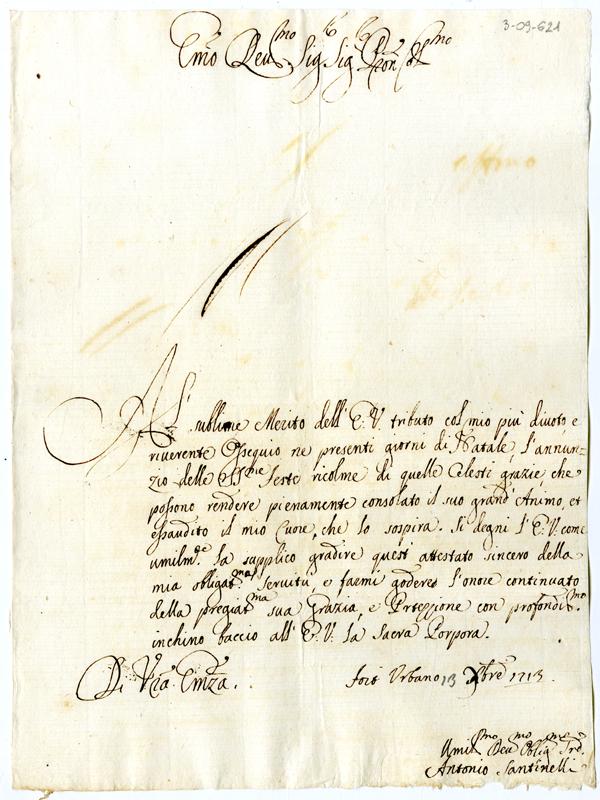 3-09-621
Emo Reumo Sigre Sigre Pron Colmo
Al sublime Merito dell' E. V. tributo col mio più divoto e
riverente Ossequio ne presenti giorni di Natale, l'annun-
zio delle Feste ricolme di quelle Celesti grazie, che
possono rendere pienamente consolato il suo grand' Animo, et
essaudito il mio Cuore, che lo sospira. Si degni l'E. V. come
umilmte la supplico gradire quest' attestato sincero della
mia obligatma servitù, e farmi godere l'onore continuato
della pregiatma sua Grazia, e Protezzione con profondismo
inchino baccio all' E. V. la Sacra Porpora.
Di Vra Emza.
Forte Urbano 13 Xbre 1713.
Umilmo Deumo Obligmo Sre
Antonio Santinelli